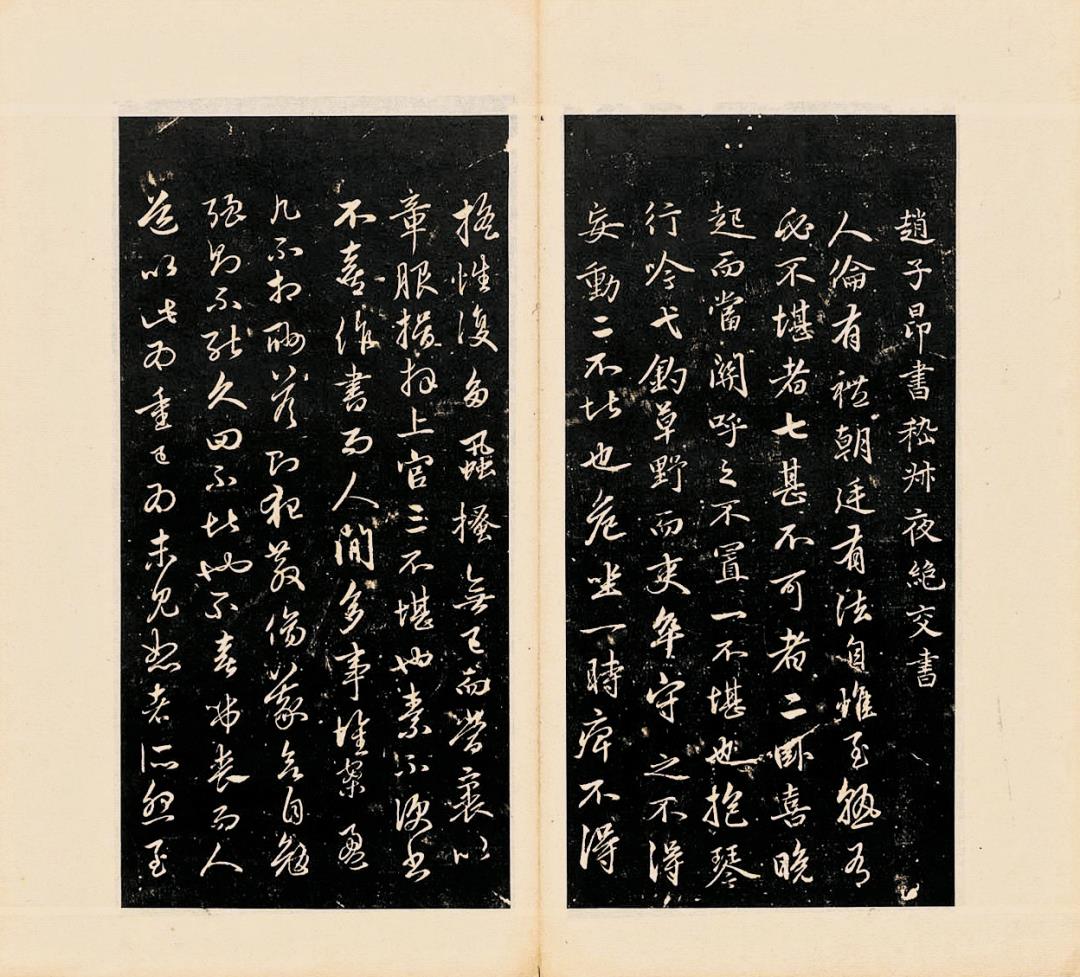 趙子昂書嵇叔夜絕交書
人倫有禮朝廷有法自惟至熟有
必不堪者七甚不可者二臥喜晚
起而當關呼之不置一不堪也抱琴
行吟弋釣草野而吏卒守之不得
妄動二不堪也危坐一時痺不得
搖性復多蝨搔無已而當裹以
章服揖拜上官三不堪也素不便書
不喜作書而人間多事堆案盈
几不相酬答則犯教傷義欲自勉
強則不能久四不堪也不喜弔喪而人
道以此為重已為未見恕者所怨至